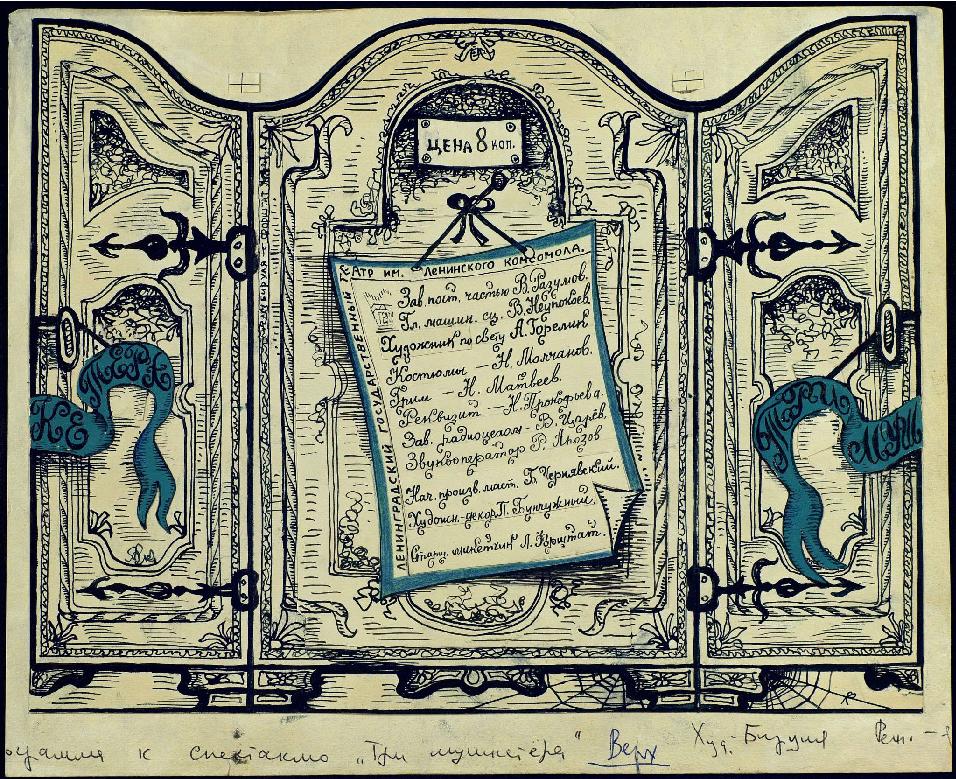 ЦЕНА 8 коп.
ЛЕНИНГРАДСКИЙ ГОСУДАРСТВЕННЫЙ
ТЕАТР ИМ. ЛЕНИНСКОГО КОМСОМОЛА.
Зав. пост. частью В. Разумов.
Гл. машин. сц. В. Неупокоев
Художник по свету А. Горелик
Костюмы — Н. Молчанов.
Грим — Н. Матвеев.
Реквизит — Н. Прокофьева.
Зав. радиоцехом - В. Царёв.
Звукооператор Р.
Нач. произв. маст. Г. Чернявский.
Художн.-декор. П. Бунчужный.
Л. Криштат.
КЕ
ТЕРА
ТРИ
МУШ
к спектаклю „Три мушкетёра" Верх Худ.